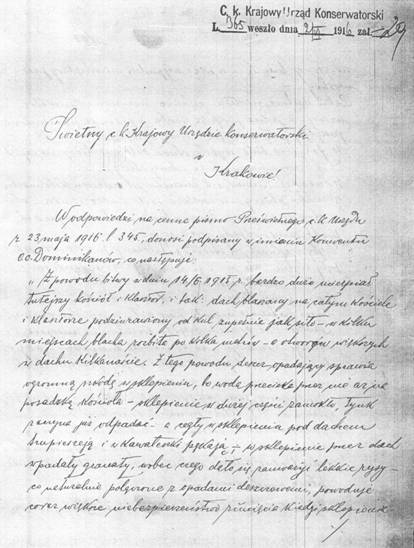 C. k. Krajowy Urząd Konserwatorski
L. 365 weszło dnia 2/VI 1916 zał
Świetny c. k. Krajowy Urzędzie Konserwatorski
w
Krakowie!
W odpowiedzi na cenne pismo Prześwietnego c. k. Urzędu
z 23 maja 1916 l. 345, donosi podpisany w imieniu Konwentu
oo. Dominikanów, co następuje:
„Z powodu bitwy w dniu 14/6 1915 r. bardzo dużo ucierpiał
tutejszy kościół i klasztor, i tak: dach blaszany na całym kościele
i klasztorze podziurawiony od kul zupełnie jak sito – w kilku
miejscach blacha zrobiła po kilka metrów – a otworów większych
w dachu kilkanaście. Z tego powodu deszcz opadający sprawia
ogromną szkodę w sklepieniu, bo woda przecieka przez nie aż na
posadzkę kościoła – sklepienie w dużej części zamokło, tynk
zaczyna już odpadać – a cegły w sklepieniu pod dachem
trupieszeją i w kawałeczki pękają – w sklepienie przez dach
wpadały granaty, wobec czego dało się zauważyć lekkie rysy –
co naturalnie połączone z opadami deszczowemi, powoduje
coraz większe niebezpieczeństwo runięcia kiedyś sklepienia